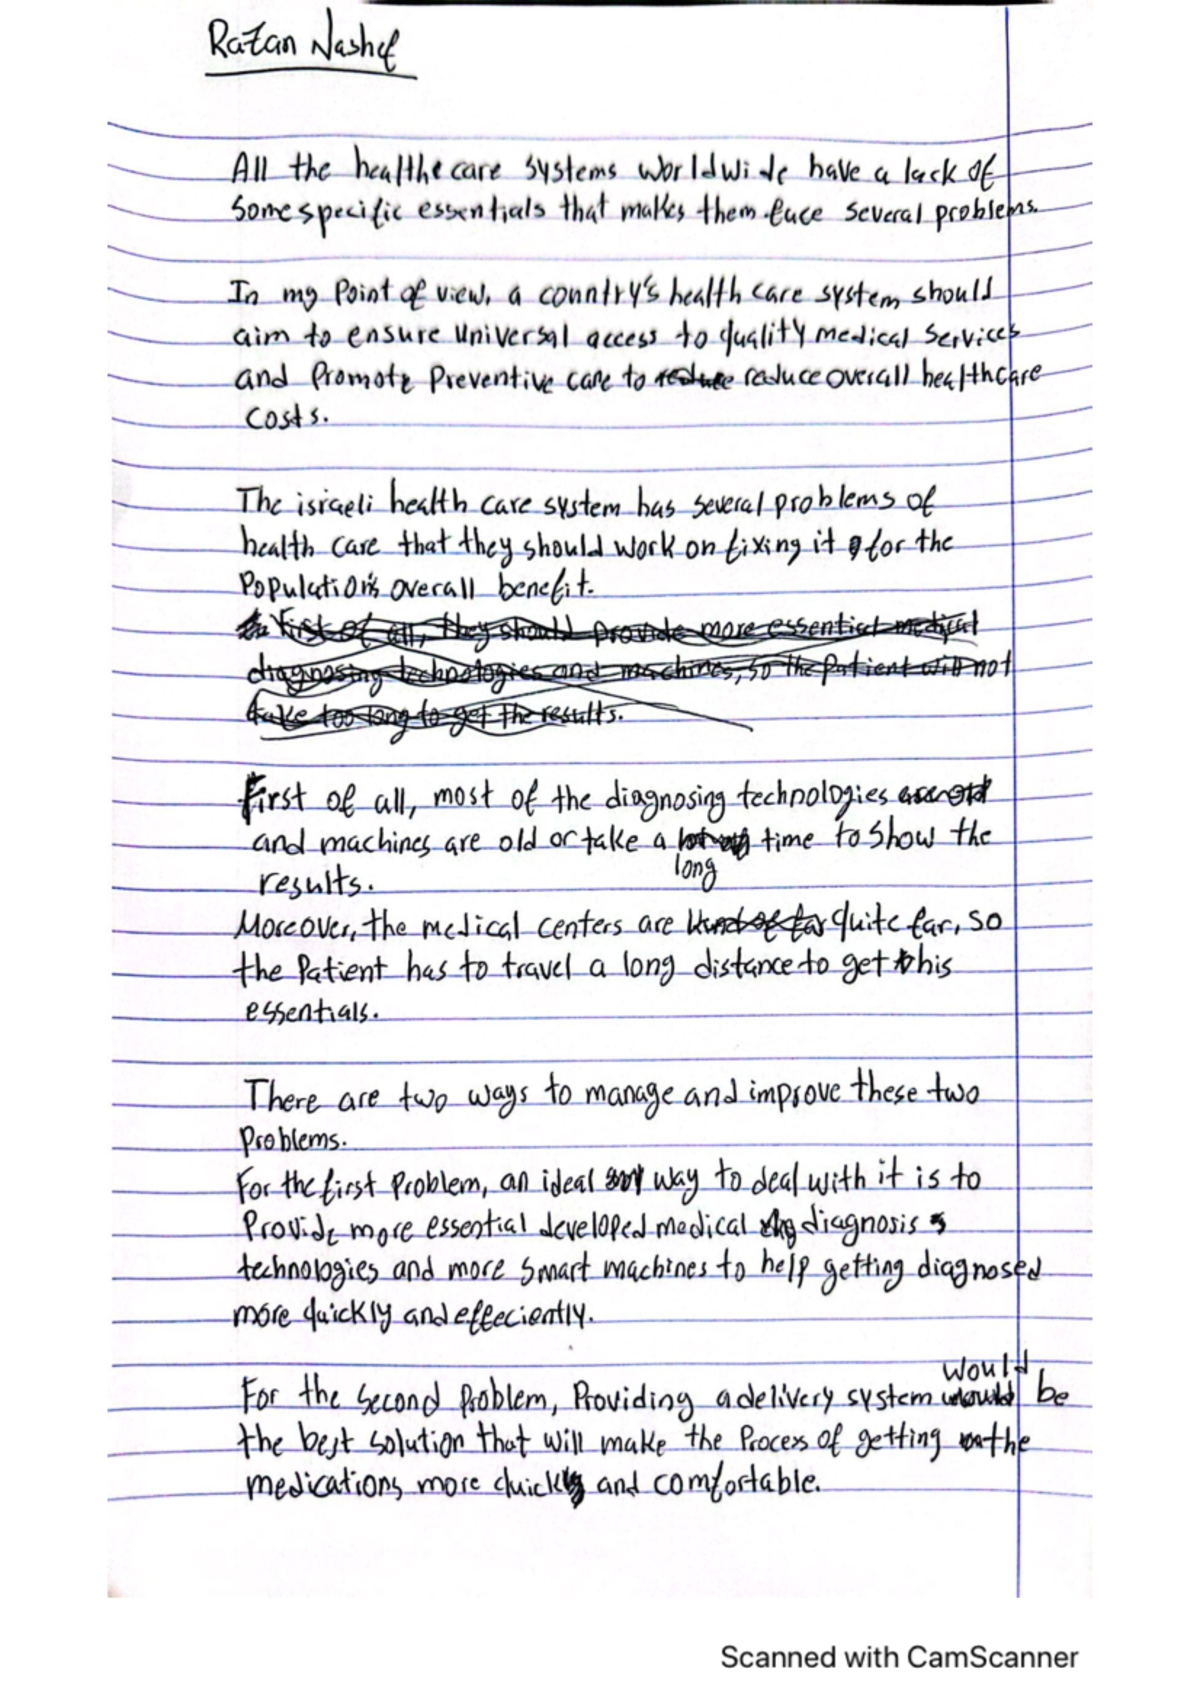 Razan Nashef
All the healthe care systems worldwide have a lack of
some specific essentials that makes them face several problems.
In my Point of view, a country's health care system should
aim to ensure Universal access to quality medical services
and Promote Preventive care to reduce raduce overall healthcare
costs.
The israeli health care system has several problems of
health care that they should work on fixing it for the
Population's overall benefit.
First of all, they should provide more essential medical
diagnosing technologies and machines, so the patient will not
take too long to get the results.
First of all, most of the diagnosing technologies are old
and machines are old or take a time to show the
long
results.
Moreover, the medical centers are kind of far quite far, so
the Patient has to travel a long distance to get this
essentials.
There are two ways to manage and improve these two
Problems.
For the first Problem, an ideal way to deal with it is to
Provide more essential developed medical diagnosis
technologies and more smart machines to help getting diagnosed
more quickly and effeciently.
would
For the second Problem, Providing a delivery system would be
the best solution that will make the Process of getting the
medications more quick and comfortable.
Scanned with CamScanner